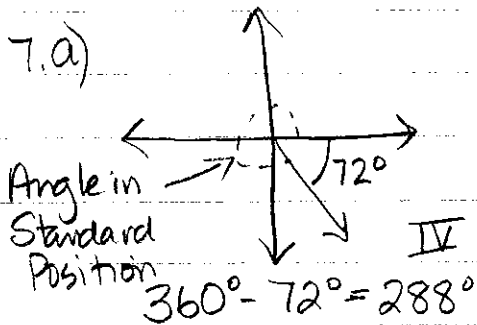 7.a)
72°
Angle in
Standard
Position
IV
360° - 72° = 288°